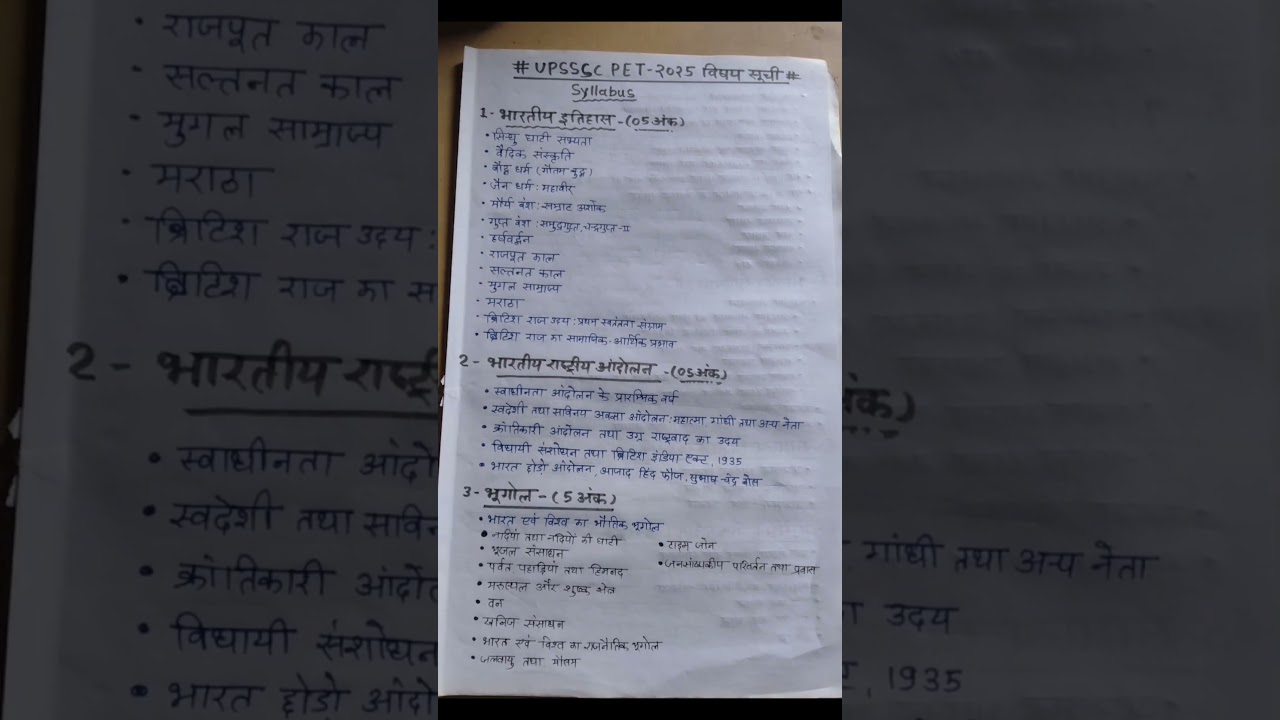 # UPSSSC PET-२०२५ विषय सूची #
Syllabus
1- भारतीय इतिहास -(05 अंक)
• सिन्धु घाटी सभ्यता
• वैदिक संस्कृति
• बौद्ध धर्म (गौतम बुद्ध)
• जैन धर्म : महावीर
• मौर्य वंश : सम्राट अशोक
• गुप्त वंश : समुद्रगुप्त, चन्द्रगुप्त-II
• हर्षवर्द्धन
• राजपूत काल
• सल्तनत काल
• मुगल साम्राज्य
• मराठा
• ब्रिटिश राज उदय : प्रथम स्वतंत्रता संग्राम
• ब्रिटिश राज का सामाजिक-आर्थिक प्रभाव
2- भारतीय राष्ट्रीय आंदोलन -(05 अंक)
• स्वाधीनता आंदोलन के प्रारम्भिक वर्ष
• स्वदेशी तथा सविनय अवज्ञा आंदोलन : महात्मा गांधी तथा अन्य नेता
• क्रांतिकारी आंदोलन तथा उग्र राष्ट्रवाद का उदय
• विधायी संशोधन तथा ब्रिटिश इंडिया एक्ट, 1935
• भारत छोड़ो आंदोलन, आजाद हिंद फौज, सुभाष चंद्र बोस
3- भूगोल - (5 अंक)
• भारत एवं विश्व का भौतिक भूगोल
• नदियां तथा नदियों की घाटी
• भूजल संसाधन
• पर्वत पहाड़ियां तथा हिमनद
• मरुस्थल और शुष्क क्षेत्र
• वन
• खनिज संसाधन
• भारत एवं विश्व का राजनैतिक भूगोल
• जलवायु तथा मौसम
• टाइम जोन
• जनसांख्यकीय परिवर्तन तथा प्रवास